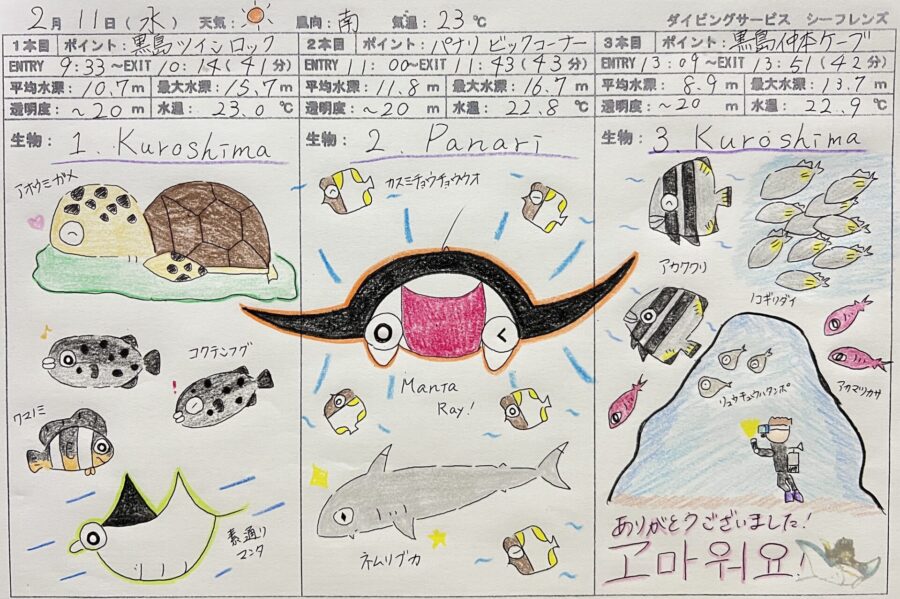 2月 11日(水) 天気: 風向: 南 気温: 23℃ ダイビングサービス シーフレンズ
1本目 ポイント: 黒島ツインロック
ENTRY 9:33〜EXIT 10:14(41分)
平均水深: 10.7m 最大水深: 15.7m
透明度: ~20m 水温: 23.0℃
生物: 1. Kuroshima
アオウミガメ
コクテンフグ
クマノミ
素通り
マンタ
2本目 ポイント: パナリ ビックコーナー
ENTRY 11:00〜EXIT 11:43(43分)
平均水深: 11.8m 最大水深: 16.7m
透明度: ~20m 水温: 22.8℃
生物: 2. Panari
カスミチョウチョウウオ
Manta
Ray!
ネムリブカ
3本目 ポイント: 黒島仲本ケーブ
ENTRY 13:09〜EXIT 13:51(42分)
平均水深: 8.9m 最大水深: 13.7m
透明度: ~20m 水温: 22.9℃
生物: 3. Kuroshima
アカククリ
ノコギリダイ
アカマツカサ
リュウキュウハタンポ
ありがとうございました!
고마워요!